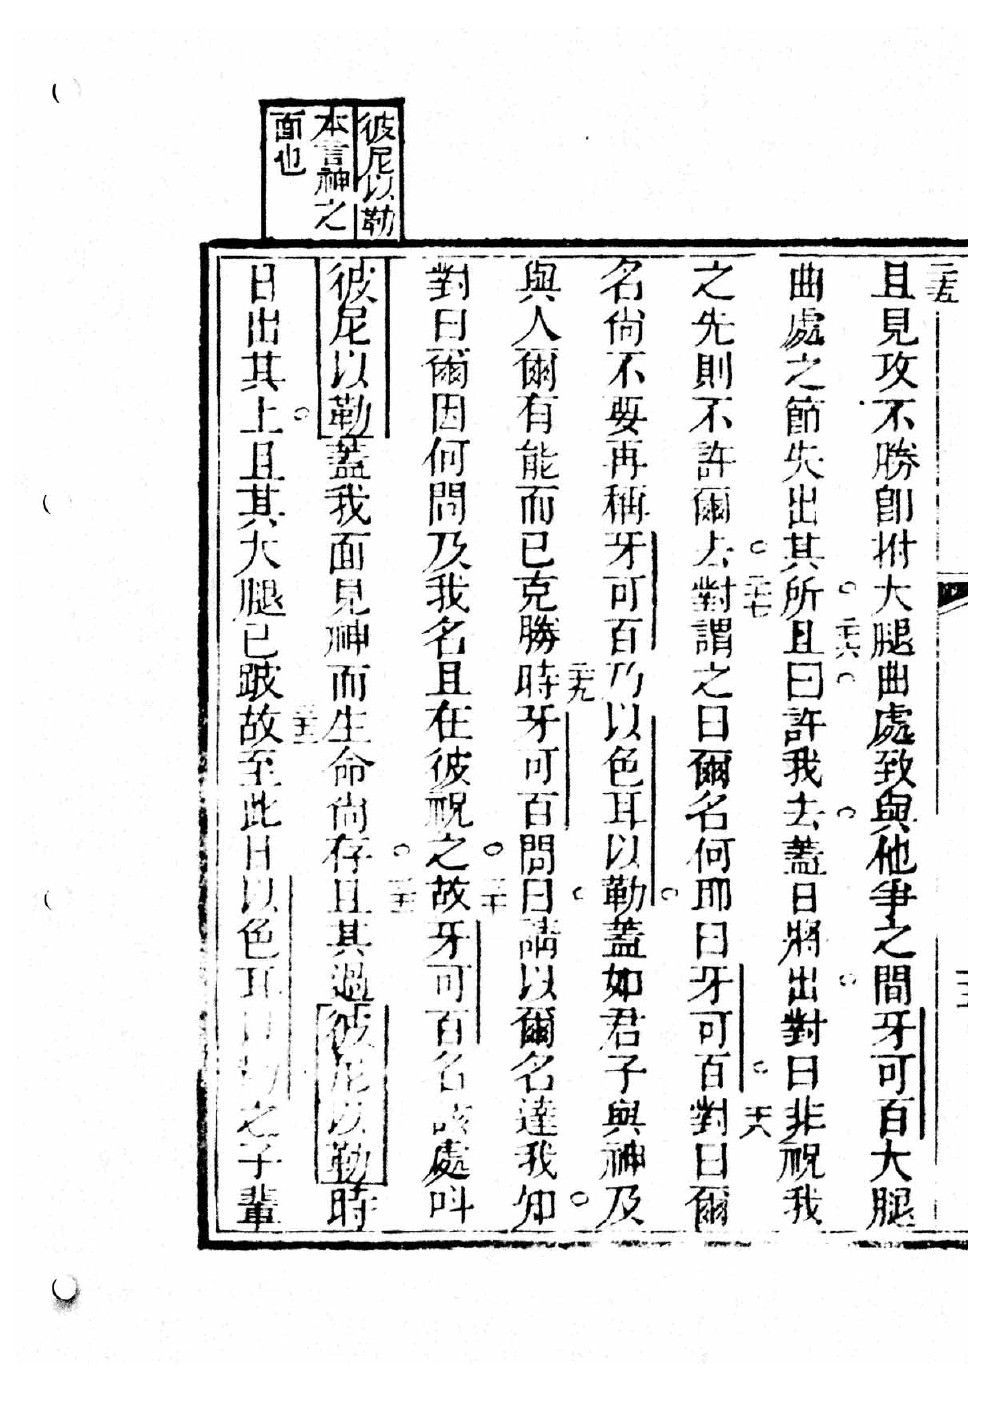 彼尼以勒
本言神之
面也
二十五
且見攻不勝卽拊大腿曲處致與他爭之間牙可百大腿
曲處之節失出其所○二十六且曰○許我去○蓋日將出○對曰非祝我
之先則不許爾去○二十七對謂之曰爾名何耶曰牙可百○二十八對曰爾
名尙不要再稱牙可百乃以色耳以勒○蓋如君子與神及
與人爾有能而已克勝時○二十九牙可百問曰○請以爾名達我知○
對曰爾因何問及我名且在彼祝之○三十故牙可百名該處呌
彼尼以勒蓋我面見神而生命尙存○三十一且其過彼尼以勒時
日出其上○且其大腿已跛三十二故至此日以色耳以勒之子輩